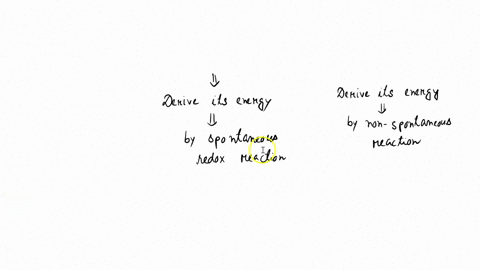 ⇓
Derive its energy
⇓
by spontaneous
redox reaction
Derive its energy
⇓
by non-spontaneous
reaction